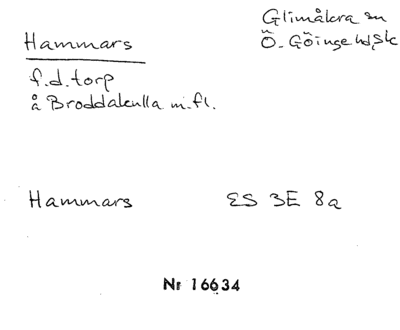 Glimåkra sn
Hammars
Ö. Göinge hd, Sk
f.d. torp
å Broddakulla m.fl.
Hammars ES 3E 8a
Nr 16634